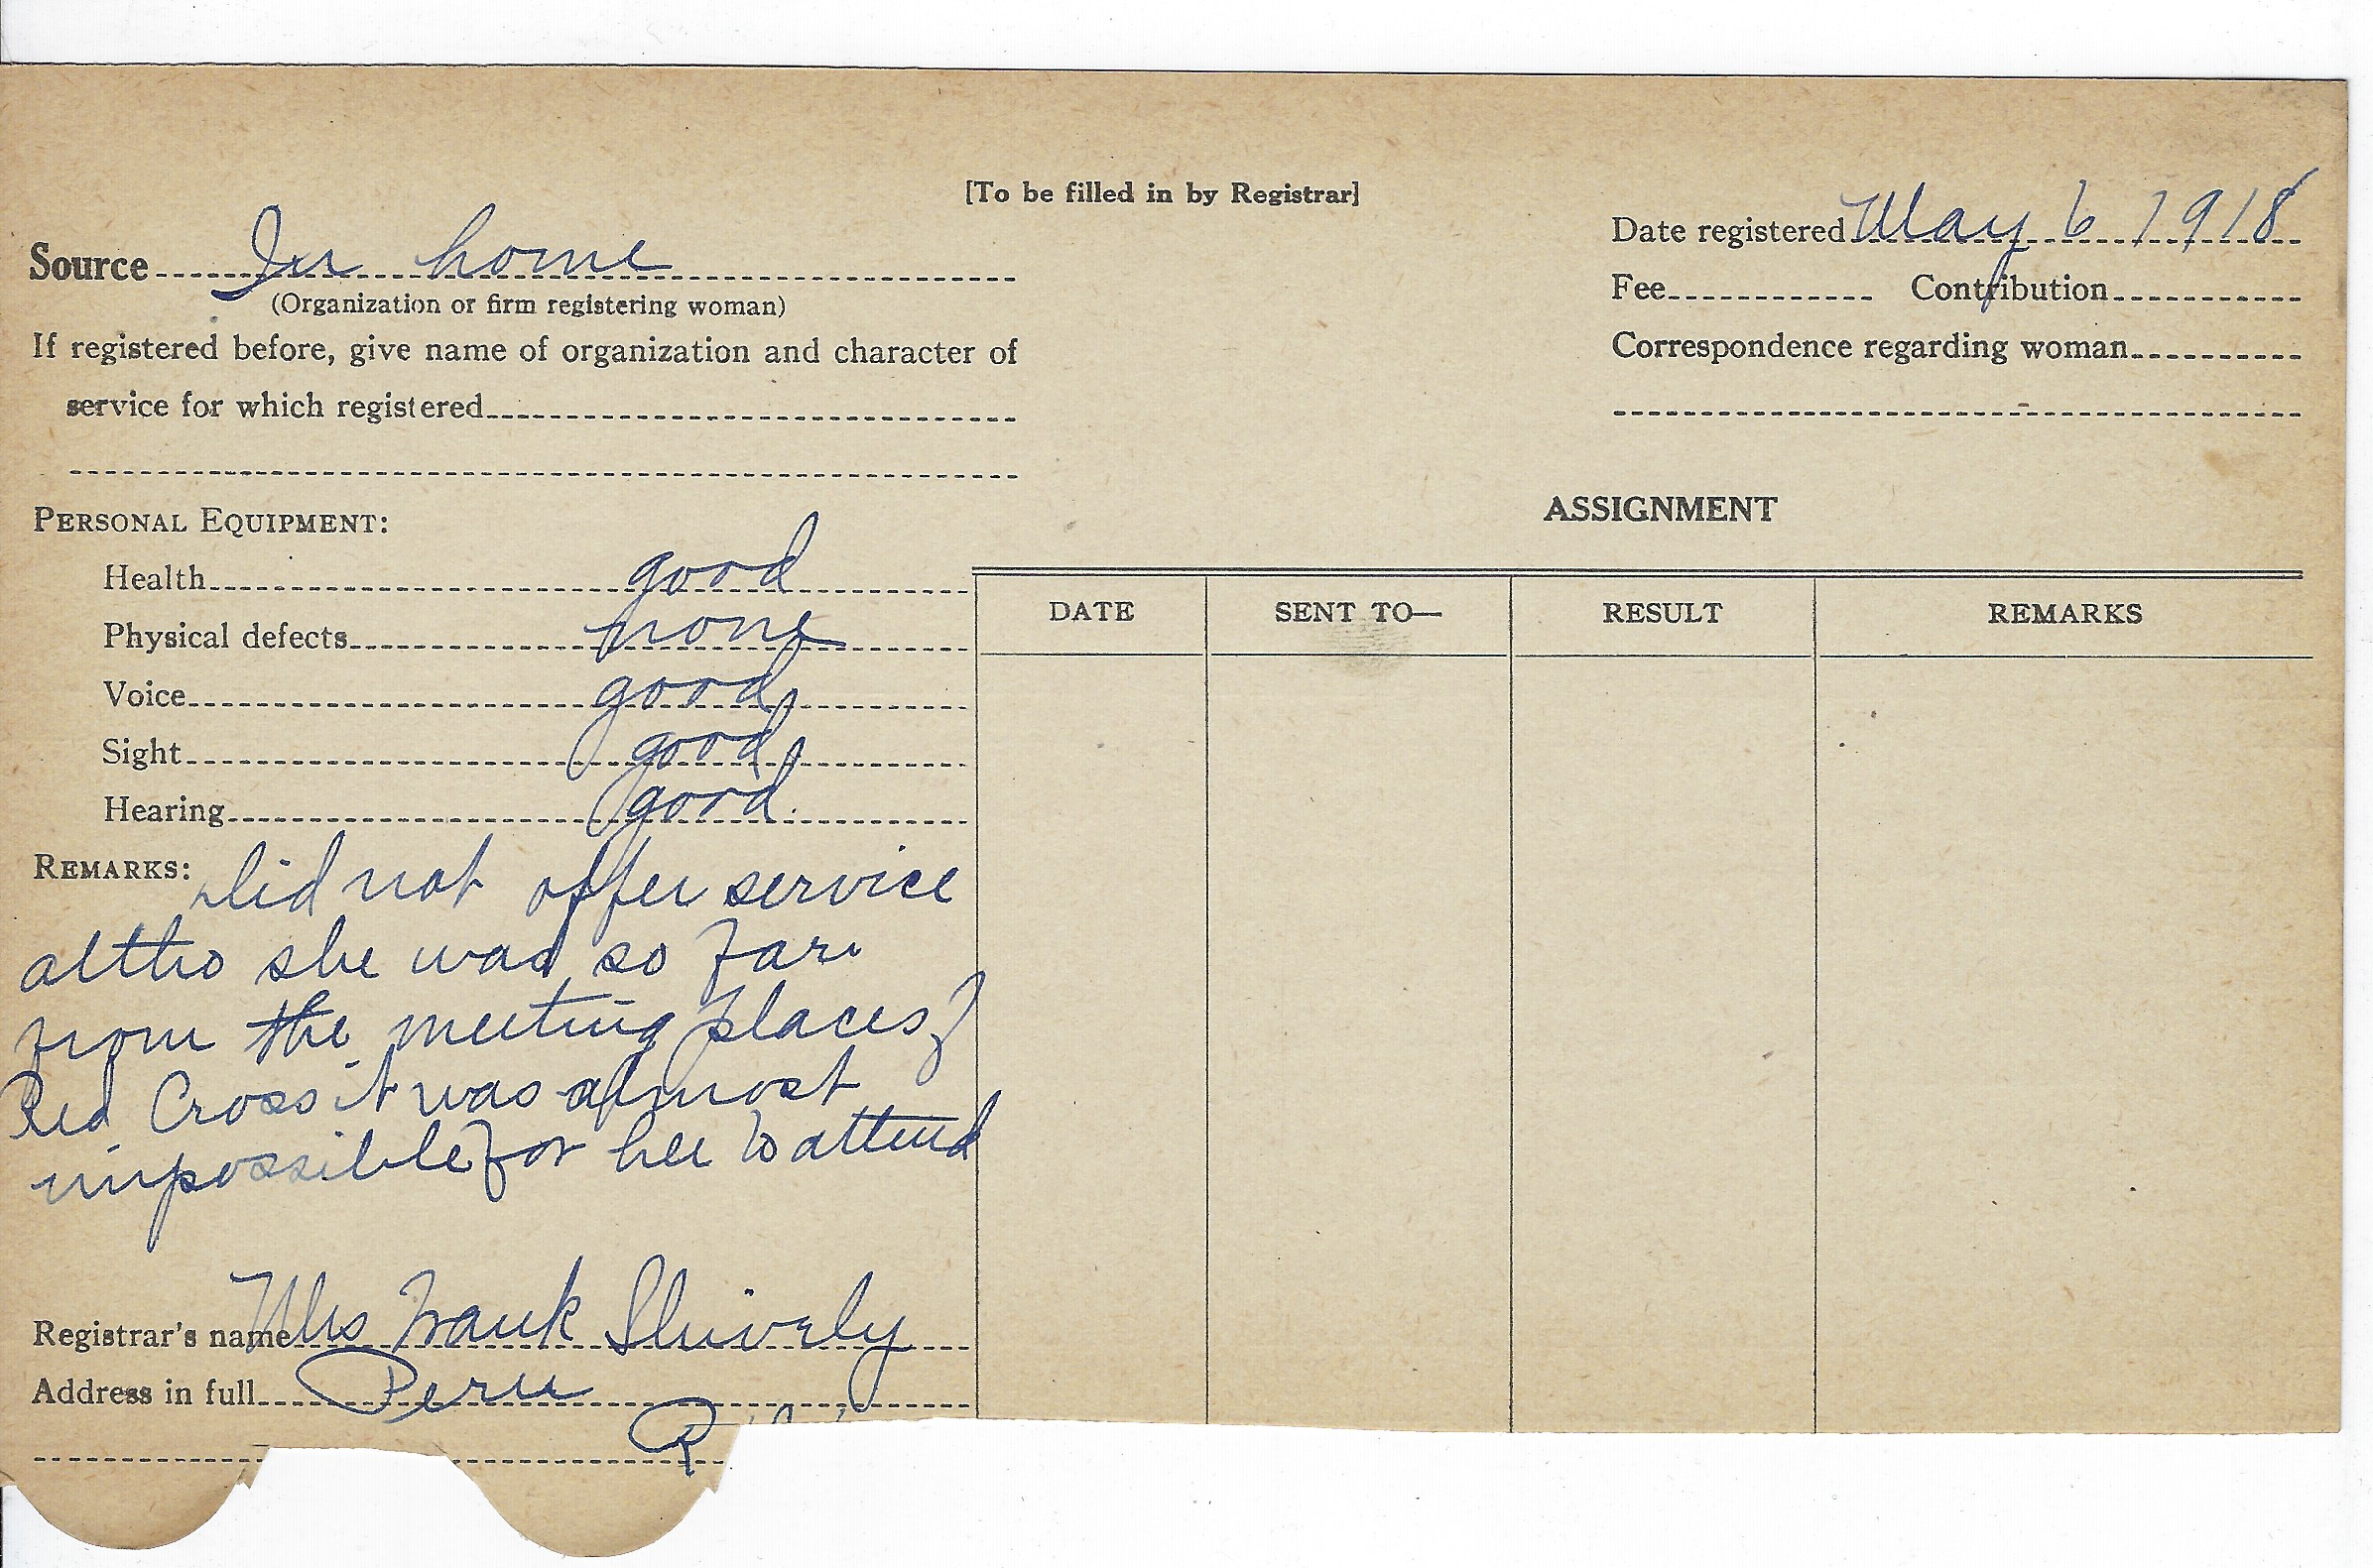 [To be filled in by Registrar]
Source In home
(Organization or firm registering woman)
If registered before, give name of organization and character of
service for which registered
Date registered May 6 1918
Fee Contribution
Correspondence regarding woman
PERSONAL EQUIPMENT:
Health good
Physical defects none
Voice good
Sight good
Hearing good.
REMARKS: Did not offer service
altho she was so far
from the meeting places
Red Cross it was almost
impossible for her to attend
Registrar's name Mrs Frank Shively
Address in full Peru
R
ASSIGNMENT
DATE SENT TO— RESULT REMARKS